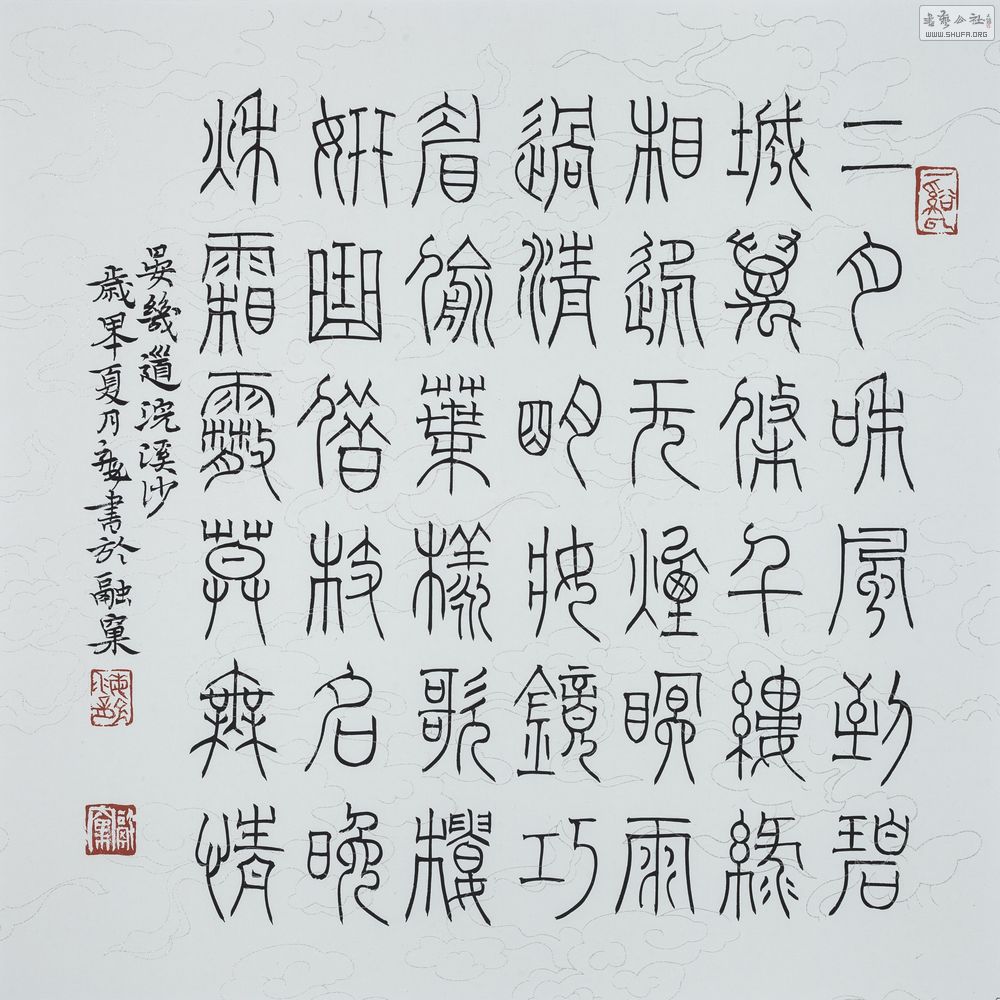 二月咊風到碧
城萬條千縷綠
相迎无煙眠雨
過清明妝鏡巧
眉偷葉樣歌樓
妍曲借枝名晚
秌霜霰莫無情
晏幾道浣溪沙
歲夏月書於融窠
書藝公社
WWW.SHUFA.ORG